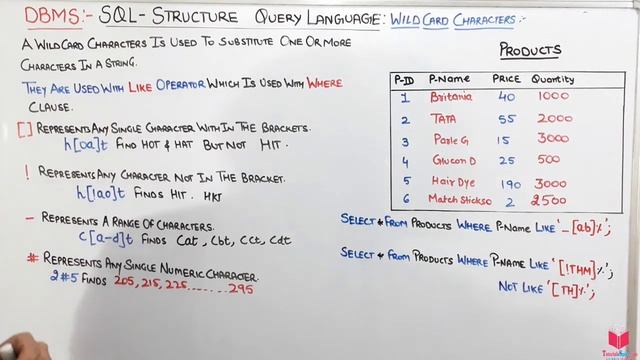 DBMS:- SQL- STRUCTURE QUERY LANGUAGE: WILD CARD CHARACTERS:-
A WILD CARD CHARACTERS IS USED TO SUBSTITUTE ONE OR MORE
CHARACTERS IN A STRING.
THEY ARE USED WITH LIKE OPERATOR WHICH IS USED WITH WHERE
CLAUSE.
[] REPRESENTS ANY SINGLE CHARACTER WITH IN THE BRACKETS.
h[oa]t FIND HOT & HAT BUT NOT HIT.
! REPRESENTS ANY CHARACTER NOT IN THE BRACKET.
h[!ao]t FINDS HIT.
- REPRESENTS A RANGE OF CHARACTERS.
C[a-d]t FINDS Cat, Cbt, CCt, Cdt
# REPRESENTS ANY SINGLE NUMERIC CHARACTER.
2#5 FINDS 205, 215, 225........295
PRODUCTS
P-ID P-NAME PRICE Quantity
1 Britania 40 1000
2 TATA 55 2000
3 Parle G 15 3000
4 Glucon D 25 500
5 Hair Dye 190 3000
6 Match Stickso 2 2500
SELECT * FROM PRODUCTS WHERE P-NAME LIKE '_[ab]%';
SELECT * FROM PRODUCTS WHERE P-NAME LIKE '[!THM]%';
NOT LIKE '[TH]%';